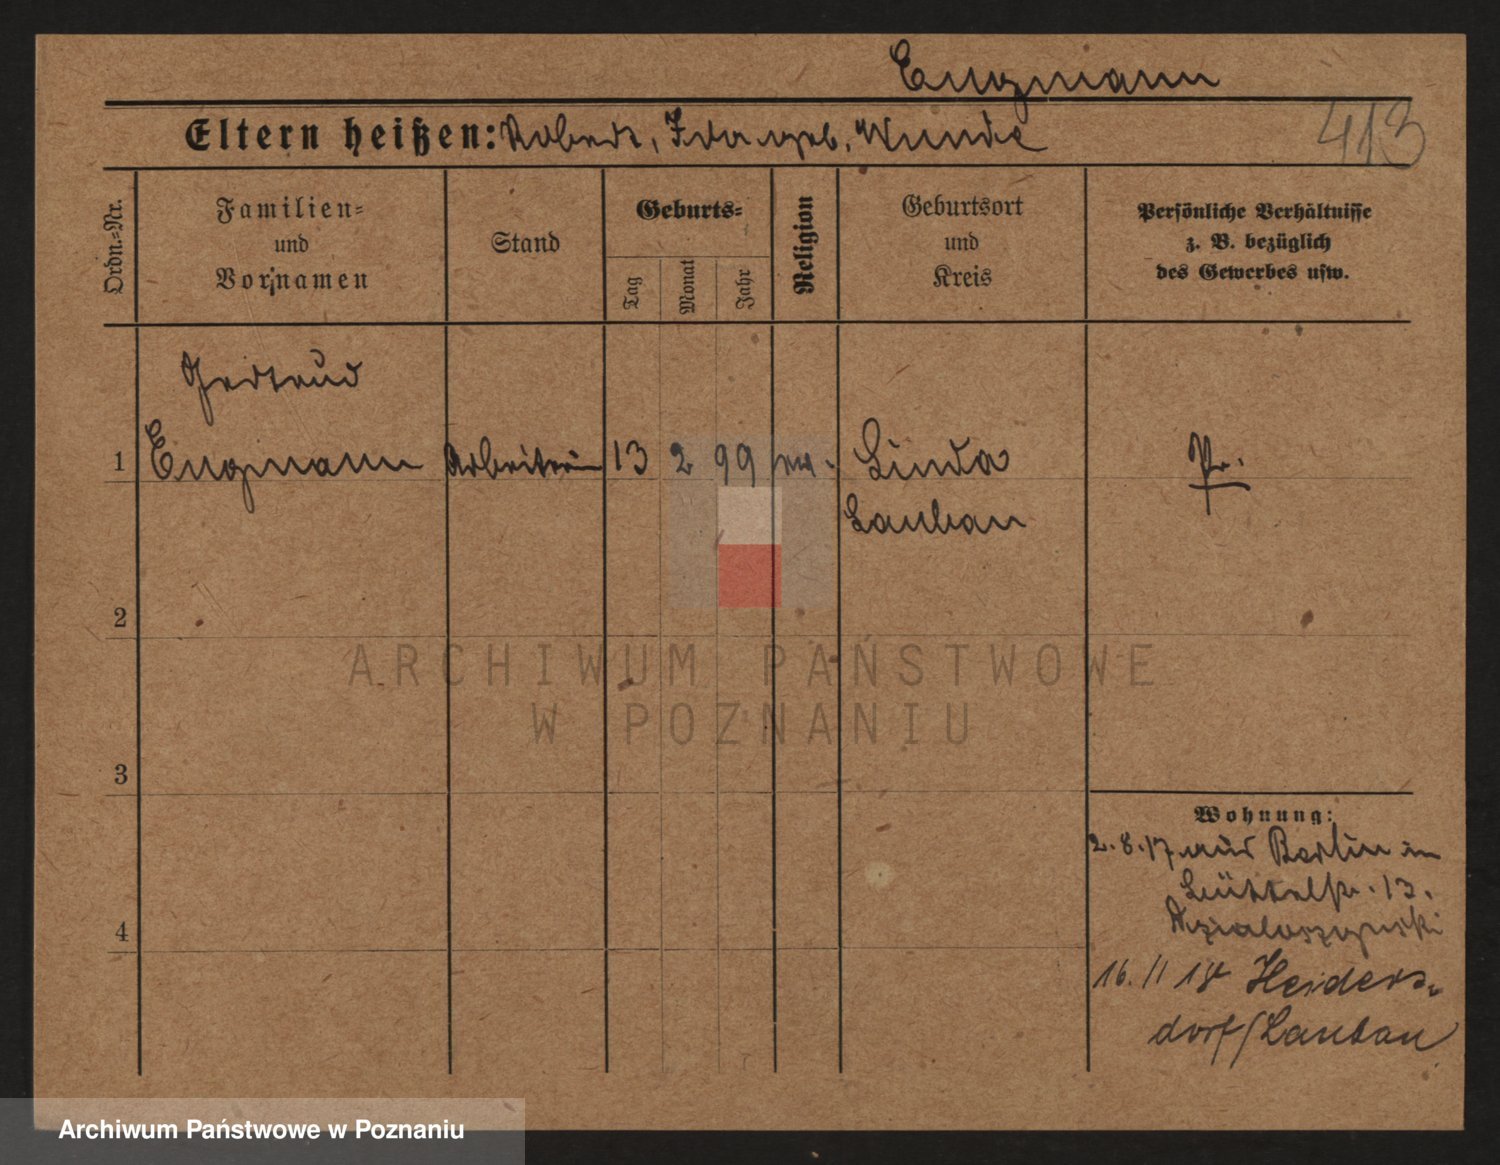 Engmann
413
Eltern heißen: Robert, Ida geb. Wunde
Ordn.=Nr.
Familien=
und
Vornamen
Stand
Geburts=
Tag
Monat
Jahr
Religion
Geburtsort
und
Kreis
Persönliche Verhältnisse
z. B. bezüglich
des Gewerbes usw.
Gertrud
1 Engmann Arbeiterin 13 2 99 ev. Linda Pr.
Lauban
2
ARCHIWUM PAŃSTWOWE
W POZNANIU
3
Wohnung:
2.8.17 aus Berlin in
13.
4
16. 11 18 Heiders-
dorf/Lauban
Archiwum Państwowe w Poznaniu